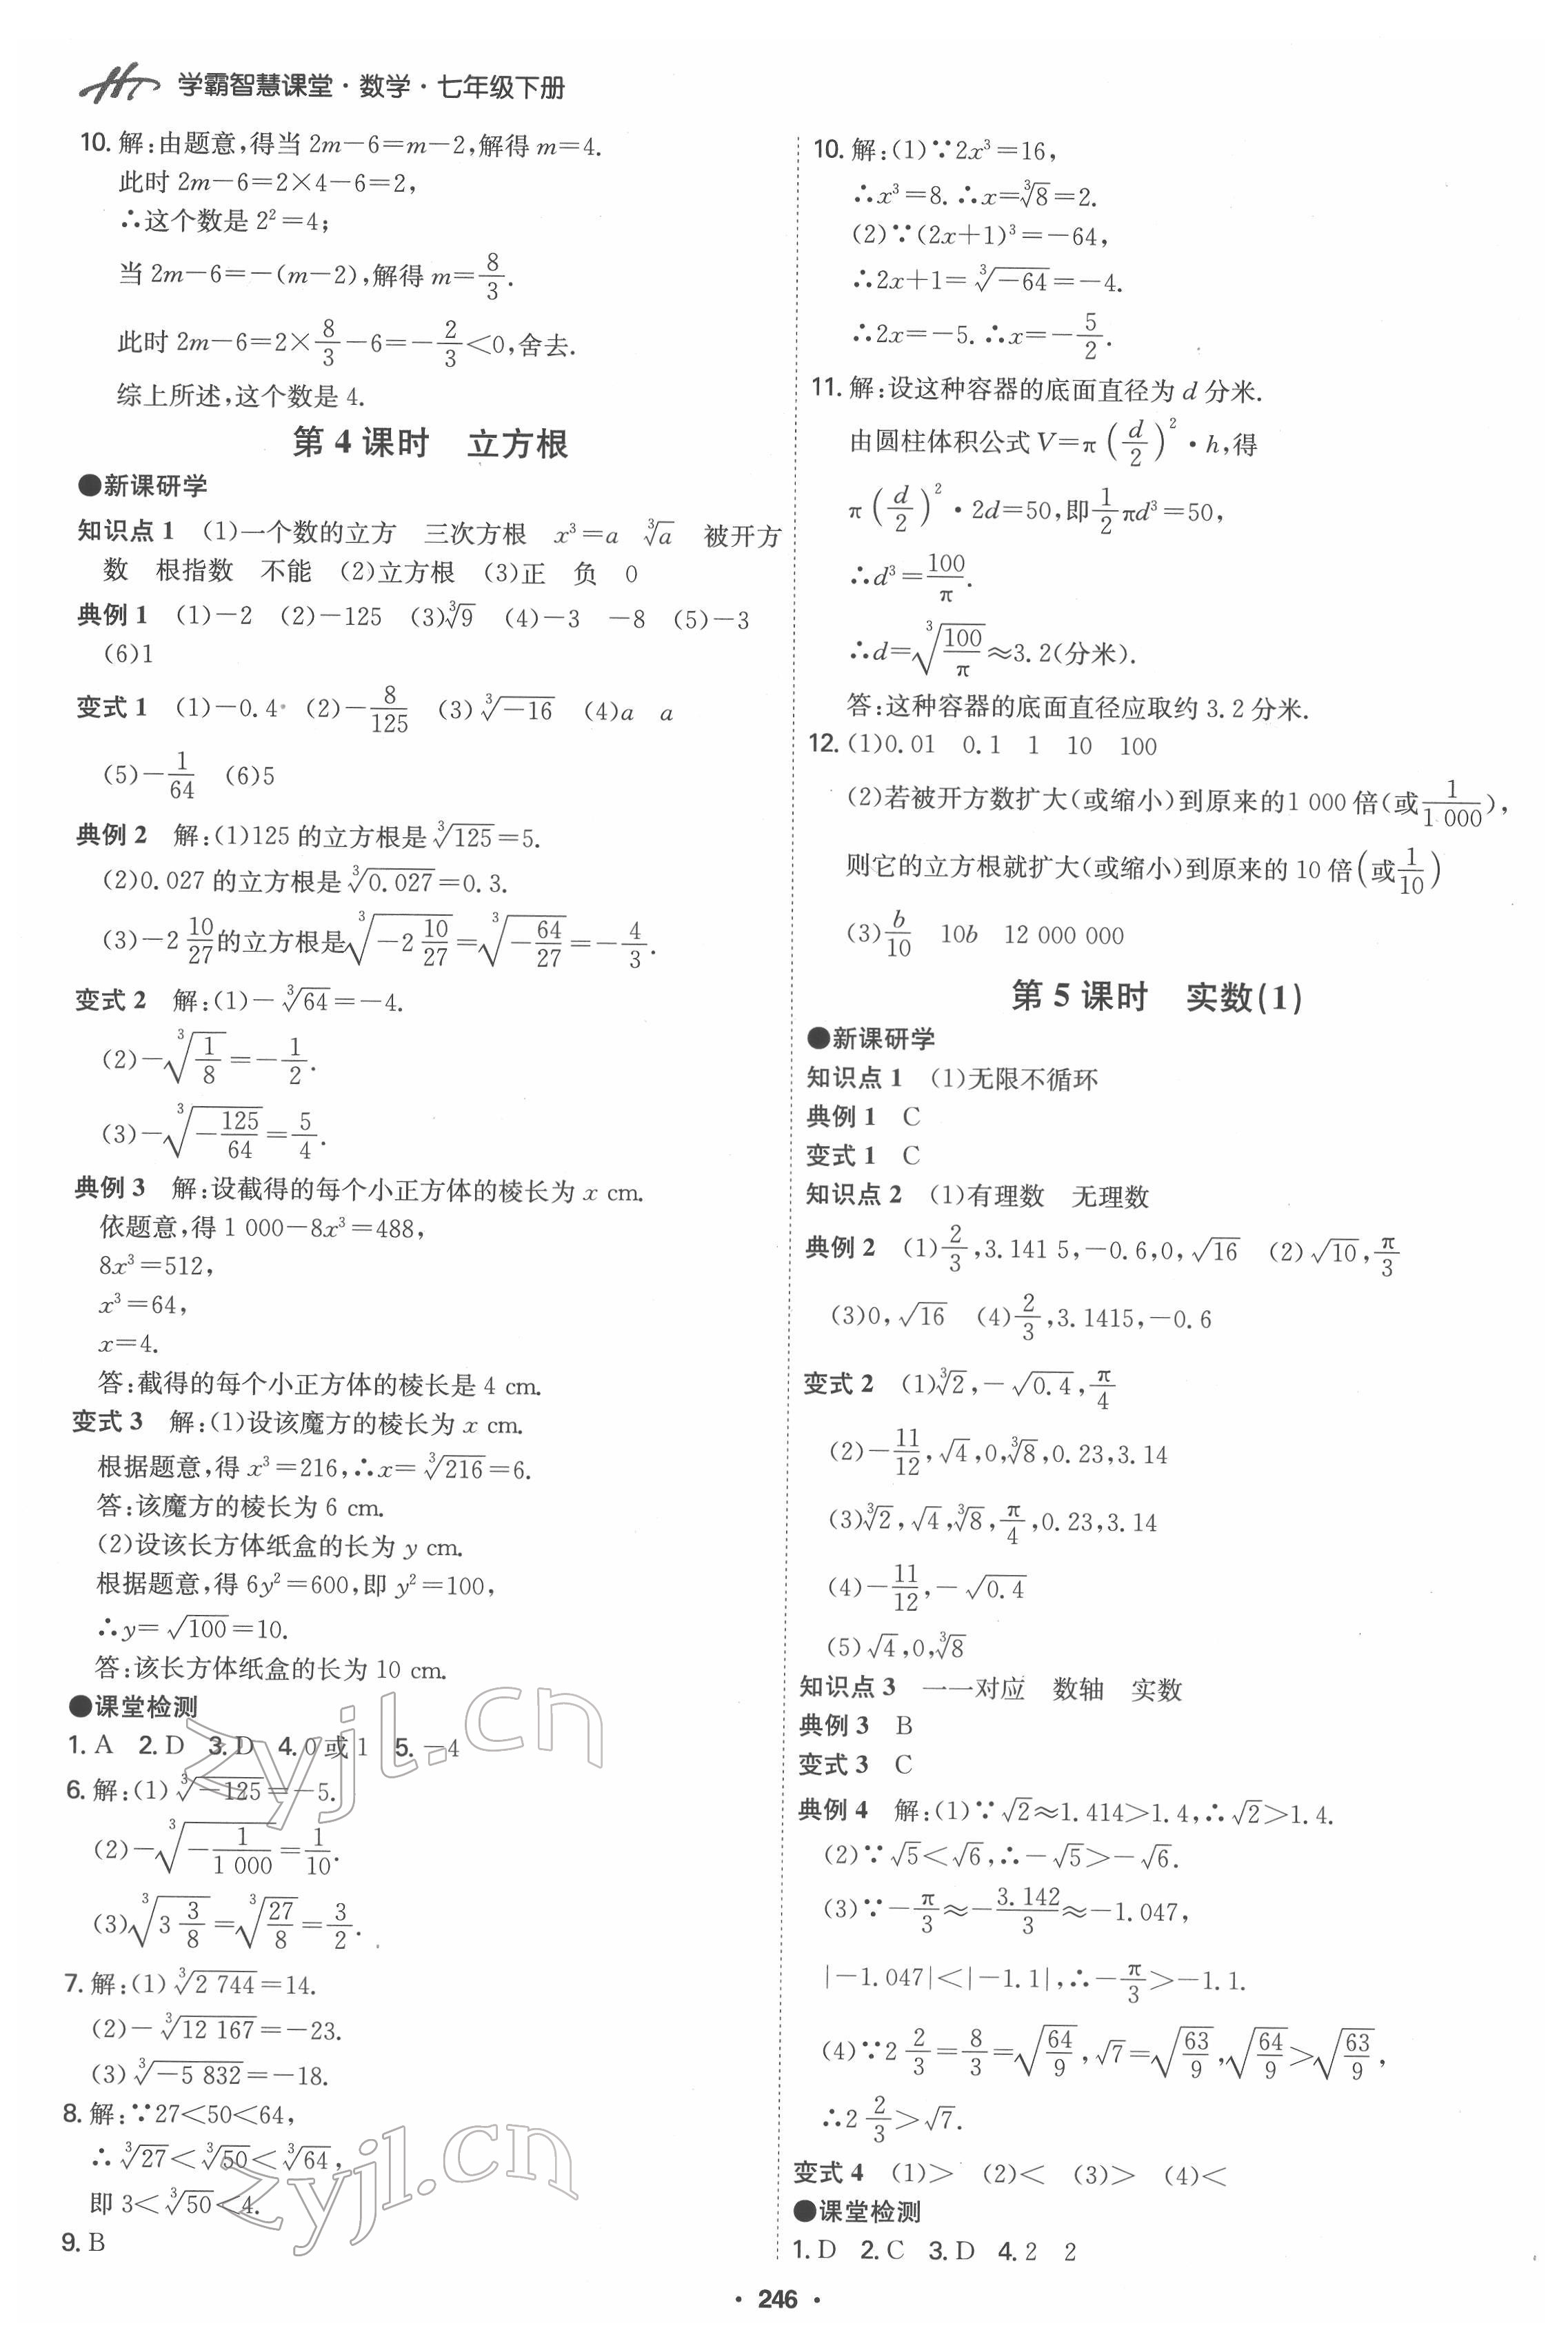 学霸智慧课堂·数学·七年级下册
10. 解:由题意,得当 2m−6=m−2,解得 m=4.
此时 2m−6=2×4−6=2,
∴这个数是 2²=4;
当 2m−6=−(m−2),解得 m=8/3.
此时 2m−6=2×8/3−6=−2/3<0,舍去.
综上所述,这个数是 4.
第 4 课时 立方根
●新课研学
知识点 1 (1)一个数的立方 三次方根 x³=a ∛a 被开方
数 根指数 不能 (2)立方根 (3)正 负 0
典例 1 (1)−2 (2)−125 (3)∛9 (4)−3 −8 (5)−3
(6)1
变式 1 (1)−0.4 (2)−8/125 (3)∛(−16) (4)a a
(5)−1/64 (6)5
典例 2 解:(1)125 的立方根是 ∛125=5.
(2)0.027 的立方根是 ∛0.027=0.3.
(3)−2 10/27的立方根是∛(−2 10/27)=∛(−64/27)=−4/3.
变式 2 解:(1)−∛64=−4.
(2)−∛(1/8)=−1/2.
(3)−∛(−125/64)=5/4.
典例 3 解:设截得的每个小正方体的棱长为 x cm.
依题意,得 1 000−8x³=488,
8x³=512,
x³=64,
x=4.
答:截得的每个小正方体的棱长是 4 cm.
变式 3 解:(1)设该魔方的棱长为 x cm.
根据题意,得 x³=216,∴x=∛216=6.
答:该魔方的棱长为 6 cm.
(2)设该长方体纸盒的长为 y cm.
根据题意,得 6y²=600,即 y²=100,
∴y=√100=10.
答:该长方体纸盒的长为 10 cm.
●课堂检测
1. A 2. D 3. D 4. 0 或 1 5. −4
6. 解:(1)∛(−125)=−5.
(2)−∛(−1/1 000)=1/10.
(3)∛(3 3/8)=∛(27/8)=3/2.
7. 解:(1)∛2 744=14.
(2)−∛12 167=−23.
(3)∛(−5 832)=−18.
8. 解:∵27<50<64,
∴∛27<∛50<∛64,
即 3<∛50<4.
9. B
10. 解:(1)∵2x³=16,
∴x³=8.∴x=∛8=2.
(2)∵(2x+1)³=−64,
∴2x+1=∛(−64)=−4.
∴2x=−5.∴x=−5/2.
11. 解:设这种容器的底面直径为 d 分米.
由圆柱体积公式 V=π(d/2)²·h,得
π(d/2)²·2d=50,即1/2πd³=50,
∴d³=100/π.
∴d=∛(100/π)≈3.2(分米).
答:这种容器的底面直径应取约 3.2 分米.
12. (1)0.01 0.1 1 10 100
(2)若被开方数扩大(或缩小)到原来的1 000 倍(或1/1 000),
则它的立方根就扩大(或缩小)到原来的 10 倍(或1/10)
(3)b/10 10b 12 000 000
第 5 课时 实数(1)
●新课研学
知识点 1 (1)无限不循环
典例 1 C
变式 1 C
知识点 2 (1)有理数 无理数
典例 2 (1)2/3,3.141 5,−0.6,0,√16 (2)√10,π/3
(3)0,√16 (4)2/3,3.1415,−0.6
变式 2 (1)∛2,−√0.4,π/4
(2)−11/12,√4,0,∛8,0.23,3.14
(3)∛2,√4,∛8,π/4,0.23,3.14
(4)−11/12,−√0.4
(5)√4,0,∛8
知识点 3 一一对应 数轴 实数
典例 3 B
变式 3 C
典例 4 解:(1)∵√2≈1.414>1.4,∴√2>1.4.
(2)∵√5<√6,∴−√5>−√6.
(3)∵−π/3≈−3.142/3≈−1.047,
|−1.047|<|−1.1|,∴−π/3>−1.1.
(4)∵2 2/3=8/3=√(64/9),√7=√(63/9),√(64/9)>√(63/9),
∴2 2/3>√7.
变式 4 (1)> (2)< (3)> (4)<
●课堂检测
1. D 2. C 3. D 4. 2 2
zyjl.cn
zyjl.cn
· 246 ·